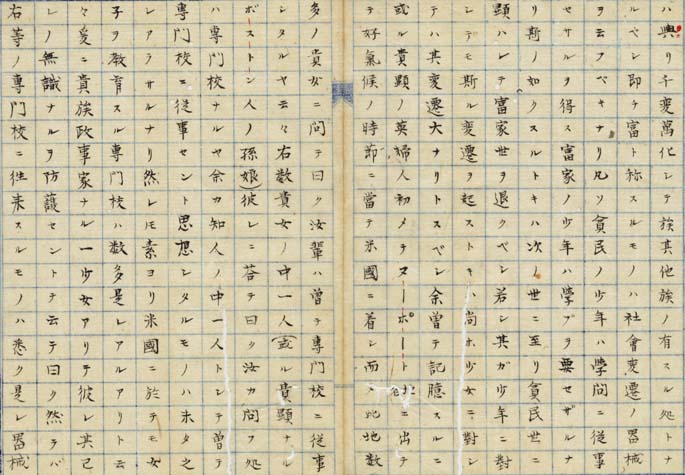 ハ興リ千変萬化シテ族其他族ノ有スル処トナ
ルベシ即チ富ト称スルモノハ社會変遷ノ噐械
ヲ云フベキナリ凡ソ貧民ノ少年ハ学問ニ従事
セサルヲ得ス富家ノ少年ハ學ブヲ要セザルナ
リ斯ノ如クスルトキハ次ノ世ニ至リ貧民世ニ
顕ハレテ富家世ヲ退クベシ若シ其ガ少年ニ對
シテモ斯ル変遷ヲ起ストキハ尚ホ少女ニ對シ
テハ其変遷大ナリトスベシ余曽テ記臆スルニ
或ル貴顕ノ英婦人初メテヌーポートニ出テ
テ好氣候ノ時節ニ當テ米國ニ着シ而ノ此地数
多ノ貴女ニ問テ曰ク汝軰ハ曽テ専門校ニ従事
シタルヤ云々右数貴女ノ中一人或ル貴顕ナル
ボストン人ノ孫娘彼レニ荅テ曰ク汝カ問フ処
ハ専門校ナルヤ余カ知人ノ中一人トシテ曽テ
専門校ニ従事セント思想シタルモノハ未タ之
レアラサルナリ然レモ素ヨリ米國ニ於テモ女
子ヲ教育スル専門校ハ数多是レアルアリト云
々爰ニ貴族政事家ナル一少女アリテ彼レ其己
レノ無識ナルヲ防護セントテ云テ曰ク然ラバ
右等ノ専門校ニ往来スルモノハ悉ク是レ噐械